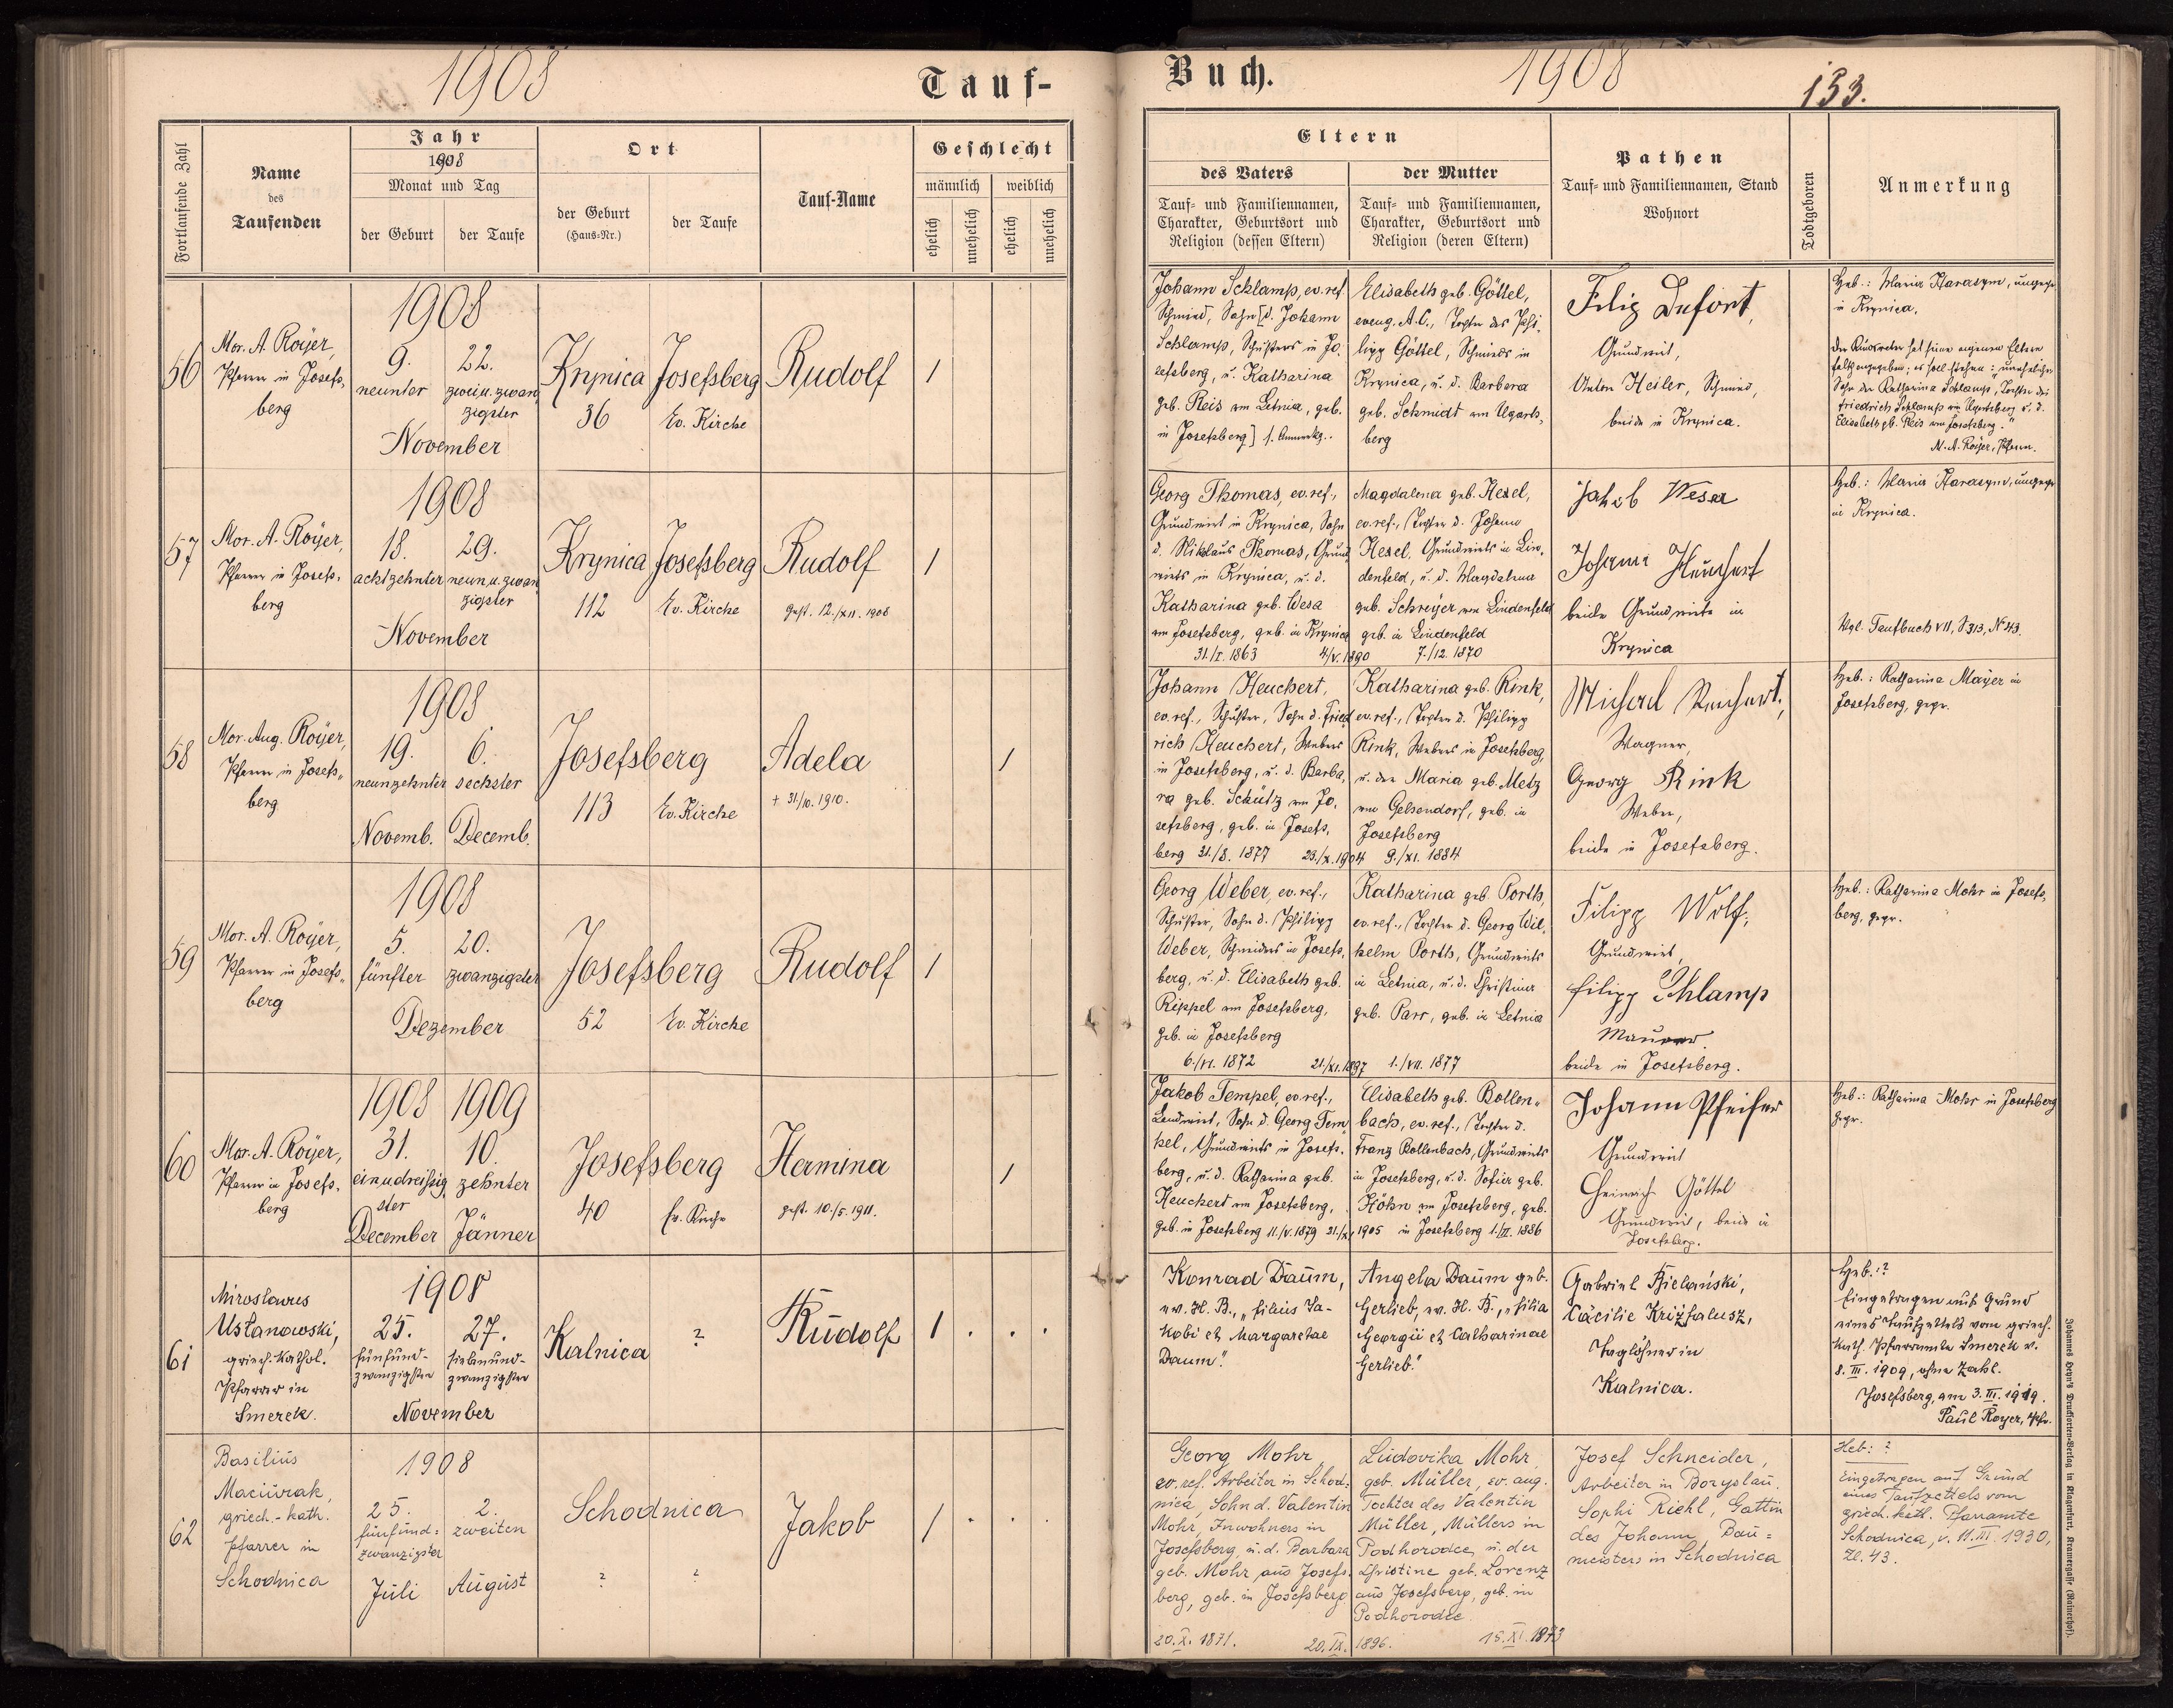 1908
Tauf-
Fortlaufende Zahl
Name
des
Taufenden
Jahr
1908
Monat und Tag
der Geburt
der Taufe
Ort
der Geburt
(Haus-Nr.)
der Taufe
Tauf-Name
Geschlecht
männlich
weiblich
ehelich
unehelich
ehelich
unehelich
56
Mor. A. Royer,
Pfarrer in Josefs-
berg
1908
9. 22.
neunter zwei u. zwan
zigster
November
Krynica
36
Josefsberg
Ev. Kirche
Rudolf
1
57
Mor. A. Royer,
Pfarrer in Josefs-
berg
1908
18. 29.
achtzehnter neun u. zwan
zigster
November
Krynica
112
Josefsberg
Ev. Kirche
Rudolf
gest. 12./XII. 1908
1
58
Mor. Aug. Royer,
Pfarrer in Josefs-
berg
1908
19. 6.
neunzehnter sechster
Novemb. Decemb.
Josefsberg
113 Ev. Kirche
Adela
+ 31./10. 1910.
1
59
Mor. A. Royer,
Pfarrer in Josefs-
berg
1908
5. 20.
fünfter zwanzigster
Dezember
Josefsberg
52 Ev. Kirche
Rudolf
1
60
Mor. A. Royer,
Pfarrer in Josefs-
berg
1908 1909
31. 10.
einudreißig zehnter
ster
December Jänner
Josefsberg
40 Ev. Kirche
Hermina
gest. 10./5. 1911.
1
61
Miroslaus
Ustanowski,
griech.-kathol.
Pfarrer in
Smerek.
1908
25. 27.
fünfund- siebenund-
zwanzigster zwanzigster
November
Kalnica
?
Rudolf
1 . . .
62
Basilius
Maciurak,
griech.-kath.
Pfarrer in
Schodnica
1908
25. 2.
fünfund= zweiten
zwanzigster
Juli August
Schodnica
? ?
Jakob
1 . . .
Buch.
1908
133.
Eltern
des Vaters
Tauf- und Familiennamen,
Charakter, Geburtsort und
Religion (dessen Eltern)
der Mutter
Tauf- und Familiennamen,
Charakter, Geburtsort und
Religion (deren Eltern)
Pathen
Tauf- und Familiennamen, Stand
Wohnort
Todtgeboren
Anmerkung
Johann Schlamp, ev. ref
Schmied, Sohn [d. Johann
Schlamp, Schusters in Jo-
sefsberg, u. Katharina
geb. Reis von Letnia, geb.
in Josefsberg] s. Anmerkg..
Elisabeth geb. Göttel,
evang. A. C., Tochter des Phi-
lipp Göttel, Schmieds in
Krynica, u. d. Barbara
geb. Schmidt von Ugarts-
berg
Filip Dufort,
Grundwirt,
Anton Heiler, Schmied,
beide in Krynica.
Heb.: Maria Harasym, ungepr
in Krynica.
Der Kindsvater hat seine eigenen Eltern
falsch angegeben; es soll stehen: "unehelicher
Sohn der Katharina Schlamp, Tochter des
Friedrich Schlamp von Ugartsberg u. d.
Elisabeth geb. Reis von Josefsberg."
M. A. Royer, Pfarrer.
Georg Thomas, ev. ref.,
Grundwirt in Krynica, Sohn
d. Niklaus Thomas, Grund
wirts in Krynica, u. d.
Katharina geb. Wesa
von Josefsberg, geb. in Krynica
31./I. 1863 4/V. 1890
Magdalena geb. Hexel,
ev. ref., Tochter d. Johann
Hexel, Grundwirts in Lin-
denfeld, u. d. Magdalena
geb. Schreyer von Lindenfeld
geb. in Lindenfeld
7./12. 1870
Jakob Wesa
Johann Heuchert
beide Grundwirte in
Krynica
Heb.: Maria Harasym, ungepr
in Krynica.
Vgl. Taufbuch VII, S. 313, N 43.
Johann Heuchert,
ev. ref., Schuster, Sohn d. Fried
rich Heuchert, Webers
in Josefsberg, u. d. Barba-
ra geb. Schütz von Jo-
sefsberg, geb. in Josefs-
berg 31./8. 1877 23./X. 1904
Katharina geb. Rink,
ev. ref., Tochter d. Philipp
Rink, Webers in Josefsberg,
u. der Maria geb. Metz
von Gelsendorf, geb. in
Josefsberg
9./XI. 1884
Michael Reichert,
Wagner,
Georg Rink
Weber,
beide in Josefsberg.
Heb.: Katharina Mayer in
Josefsberg, gepr.
Georg Weber, ev. ref.,
Schuster, Sohn d. Philipp
Weber, Schneiders in Josefs-
berg, u. d. Elisabeth geb.
Rippel von Josefsberg,
geb. in Josefsberg
6./VI. 1872 21./XI. 1897
Katharina geb. Porth,
ev. ref., Tochter d. Georg Wil-
helm Porth, Grundwirts
in Letnia, u. d. Christina
geb. Parr, geb. in Letnia
1./VII. 1877
Filipp Wolf,
Grundwirt,
Filipp Schlamp
Maurer
beide in Josefsberg.
Heb.: Katharina Mohr in Josefs-
berg, gepr.
Jakob Tempel, ev. ref.,
Landwirt, Sohn d. Georg Tem
pel, Grundwirts in Josefs-
berg, u. d. Katharina geb.
Heuchert von Josefsberg,
geb. in Josefsberg 11./V. 1879 21./X. 1905
Elisabeth geb. Bollen-
bach, ev. ref., Tochter d.
Franz Bollenbach, Grundwirts
in Josefsberg, u. d. Sofia geb.
Höhn von Josefsberg, geb.
in Josefsberg 1./II. 1886
Johann Pfeifer
Grundwirt
Heinrich Göttel
Grundwirt, beide in
Josefsberg.
Heb.: Katharina Mohr in Josefsberg
gepr.
Konrad Daum,
ev. H. B., "filius Ja-
kobi et Margaretae
Daum".
Angela Daum geb.
Gerlieb, ev. H. B., "filia
Georgii et Catharinae
Gerlieb."
Gabriel Bielański,
Cäcilie Krizfalusz,
Taglöhner in
Kalnica.
Heb.: ?
Eingetragen auf Grund
eines Taufzettels vom griech.
kath. Pfarramte Smerek v.
8. III. 1909, ohne Zahl.
Josefsberg, am 3. III. 1919.
Paul Royer, Pfr.
Georg Mohr,
ev. ref. Arbeiter in Schod=
nica, Sohn d. Valentin
Mohr, Inwohners in
Josefsberg, u. d. Barbara
geb. Mohr aus Josefs-
berg, geb. in Josefsberg
20. X. 1871. 20. IX. 1896.
Ludovika Mohr,
geb. Müller, ev. aug.
Tochter des Valentin
Müller, Müllers in
Podhorodce, u. der
Christine geb. Lorenz
aus Josefsberg, geb. in
Podhorodce
15. XI. 1873
Josef Schneider,
Arbeiter in Boryslau.
Sophi Riehl, Gattin
des Johann, Bau=
meisters in Schodnica
Heb: ?
Eingetragen auf Grund
eines Taufzettels vom
griech. kath. Pfarramte
Schodnica, v. 11. III. 1930,
Zl. 43.
Johannes Heyn's Drucksorten-Verlag in Klagenfurt, Kramergasse (Rainerhof).